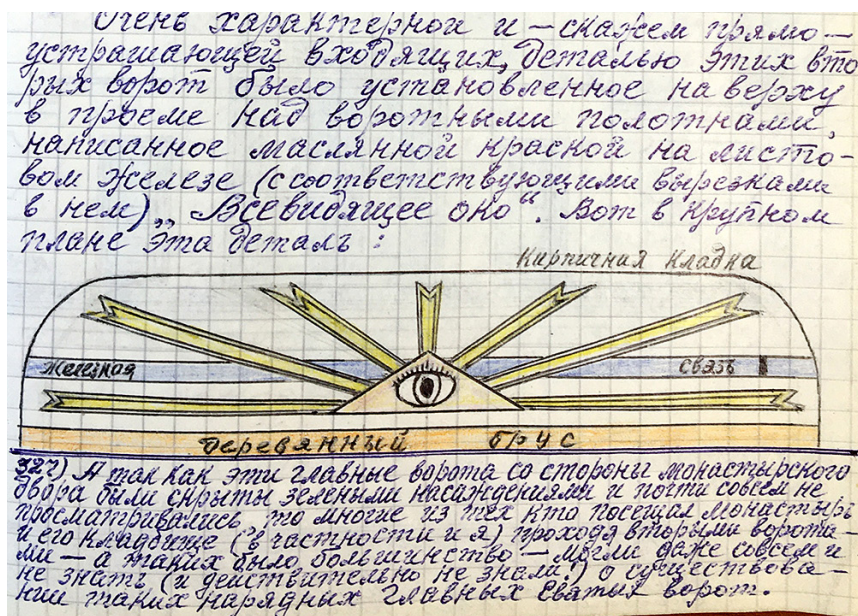 Очень характерной и – скажем прямо –
устрашающей входящих, деталью этих вто
рых ворот было установленное на верху
в проеме над воротными полотнами,
написанное маслянной краской на листо-
вом железе (с соответствующими вырезками
в нем) „Всевидящее око“. Вот в крупном
плане эта деталь:
Кирпичная кладка
Железная связь
Деревянный брус
327) А так как эти главные ворота со стороны монастырского
двора были скрыты зелеными насаждениями и почти совсем не
просматривались, то многие из тех кто посещал монастырь
и его кладбище (в частности и я) проходя вторыми ворота-
ми – а таких было большинство – могли даже совсем и
не знать (и действительно не знали!) о существова-
нии таких нарядных главных Святых ворот.